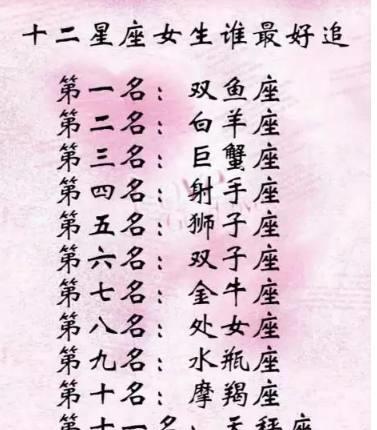 十二星座女生谁最好追
第一名：双鱼座
第二名：白羊座
第三名：巨蟹座
第四名：射手座
第五名：狮子座
第六名：双子座
第七名：金牛座
第八名：处女座
第九名：水瓶座
第十名：摩羯座
第十一名：天秤座